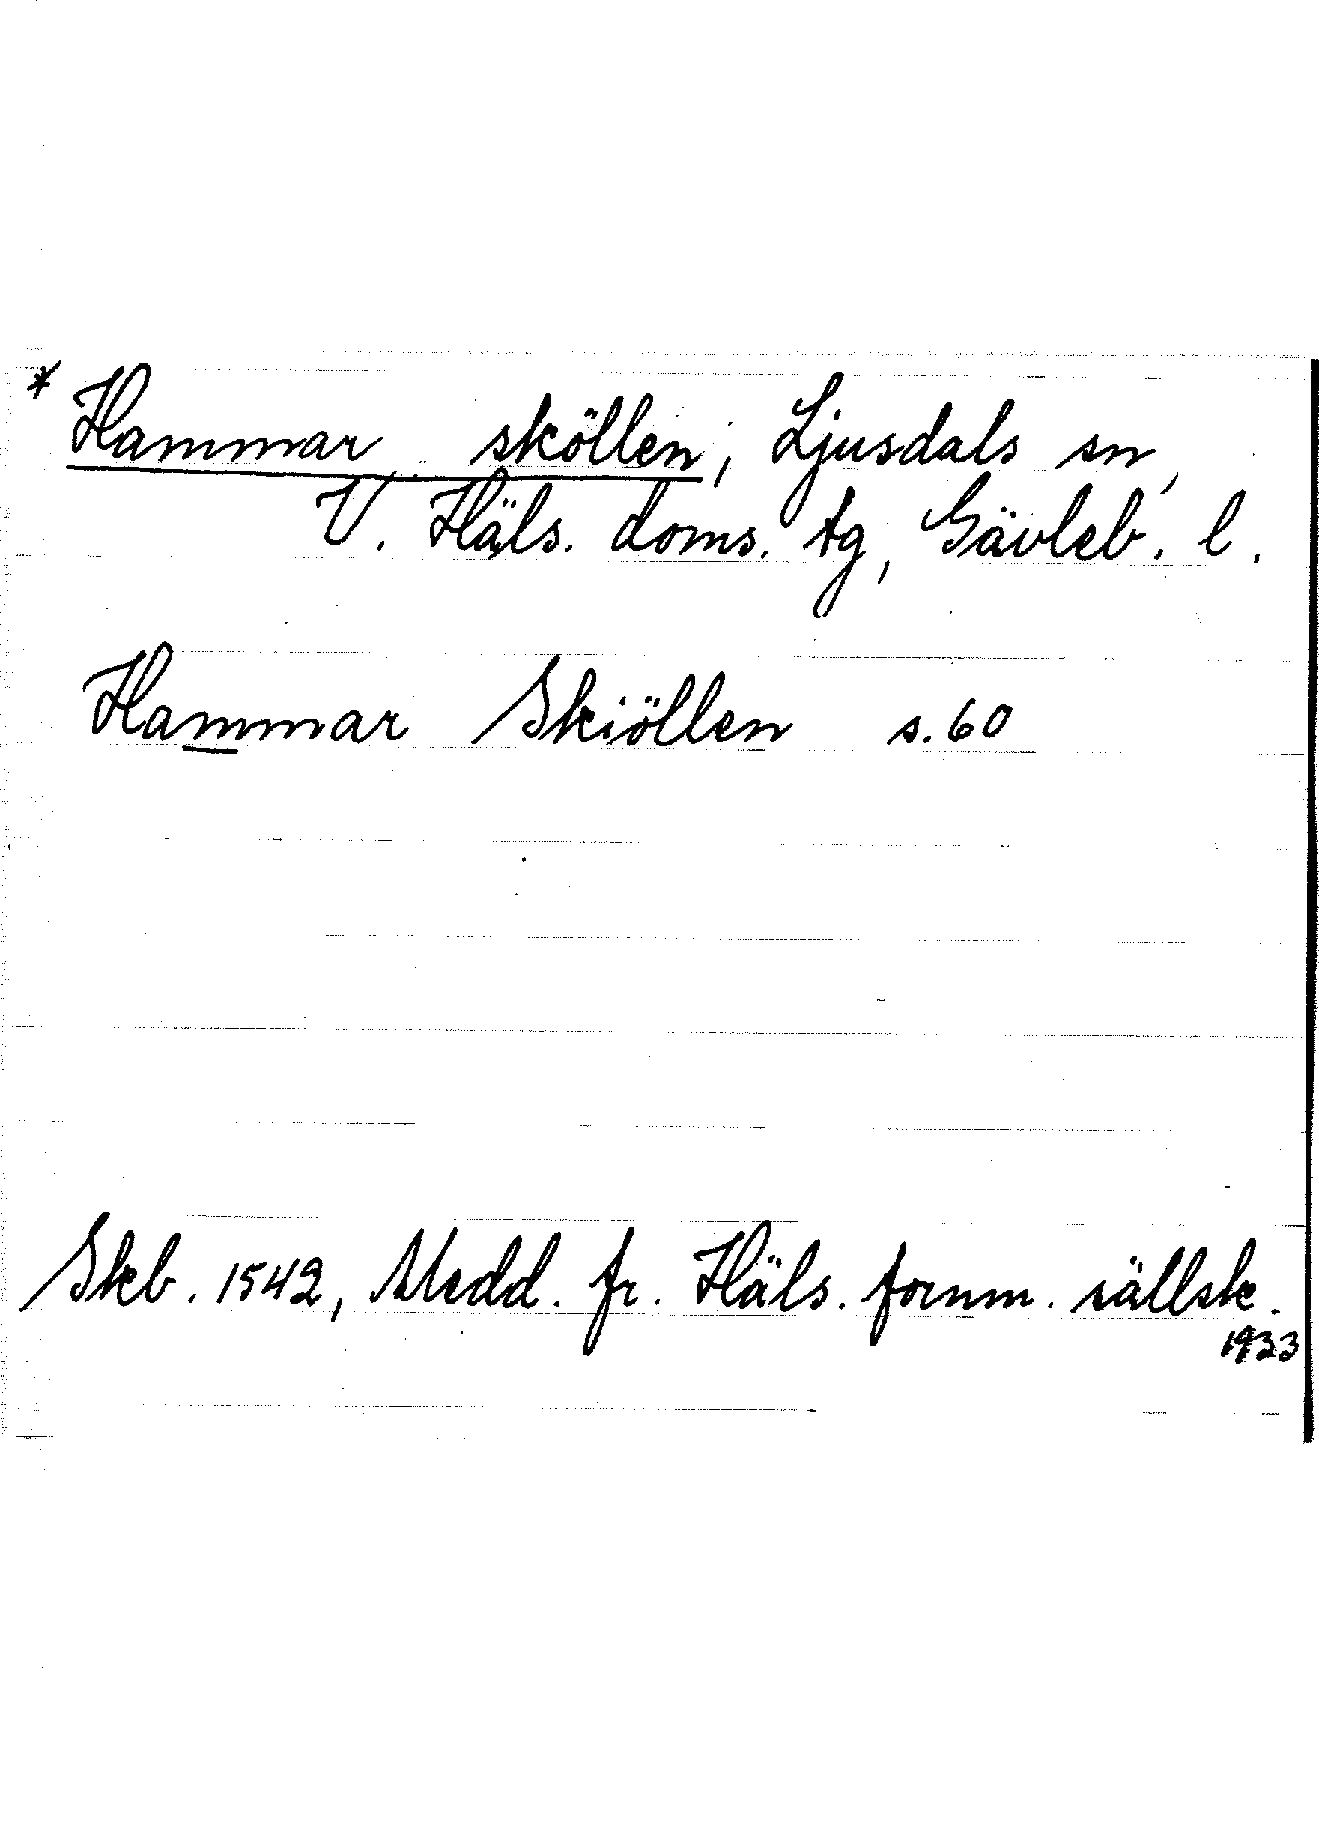 * Hammar sköllen, Ljusdals sn,
V. Häls. doms. tg, Gävleb. l.
Hammar Skiöllen s. 60
Skb. 1542, Medd. fr. Häls. fornm. sällsk.
1933